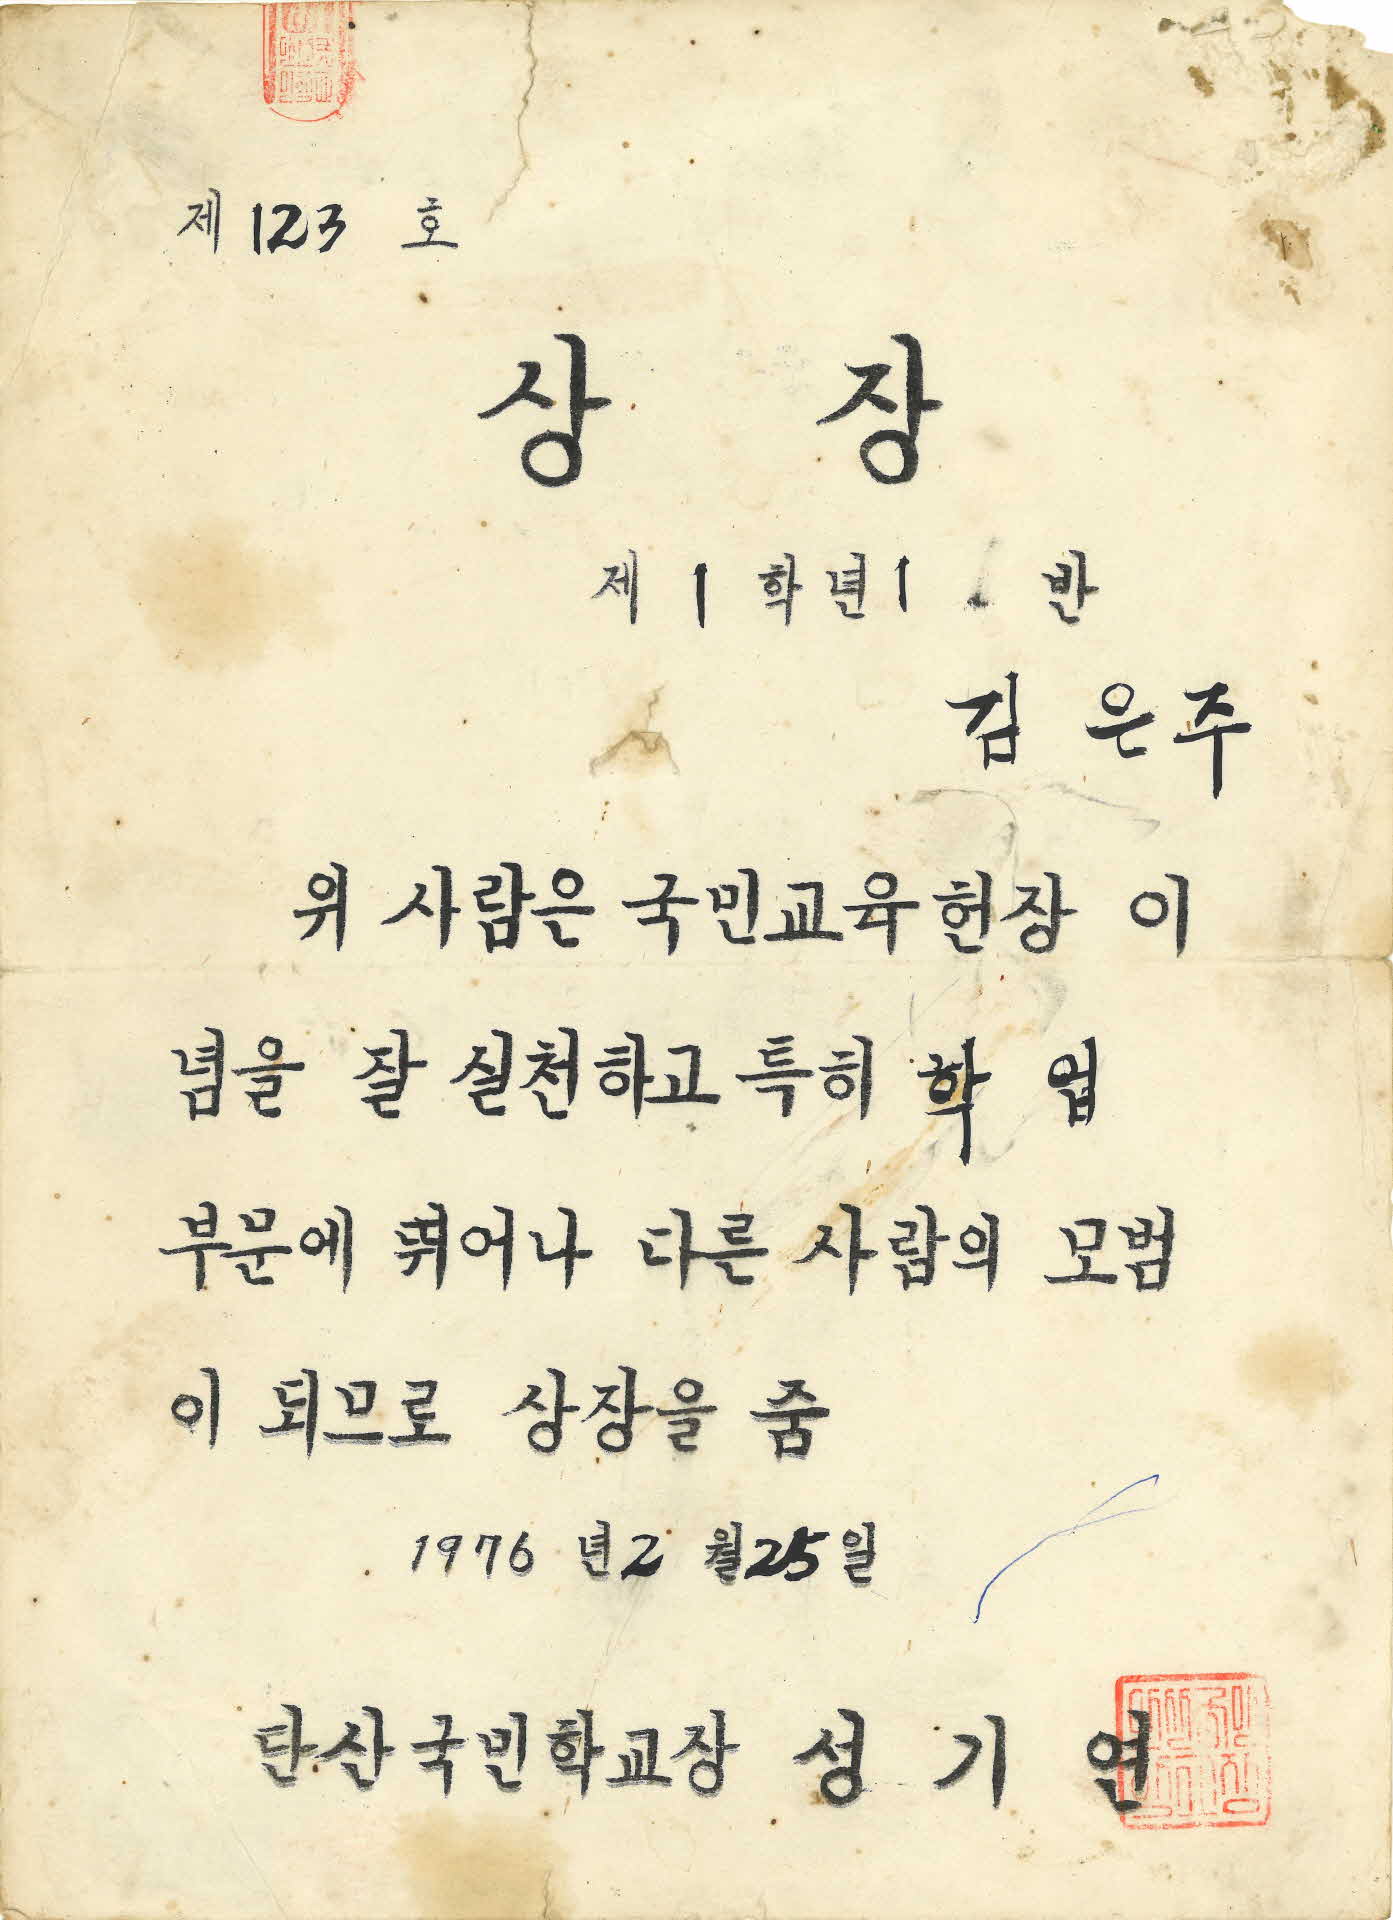 제 123 호
상 장
제 1 학년 1 반
김 은주
위 사람은 국민교육헌장 이
념을 잘 실천하고 특히 학 업
부문에 뛰어나 다른 사람의 모범
이 되므로 상장을 줌
1976 년 2 월 25 일
탄산국민학교장 성 기 연